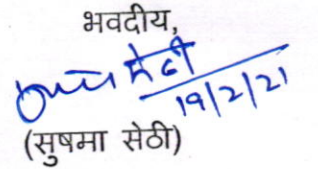 भवदीय,
सेठी
19/2/21
(सुषमा सेठी)